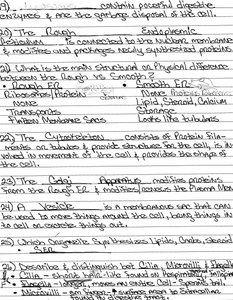 19) Lysosomes contain powerful digestive
enzymes & are the garbage disposal of the cell.
20) The Rough Endoplasmic
Reticulum is connected to the nuclear membrane
& modifies and packages newly synthesized proteins
21) What is the main structural or Physical difference
between the Rough vs Smooth?
• Rough ER • Smooth ER
Protein
None Lipid, Steroid, Calcium
Transports Storage
Flatten Membrane Sacs Looks like tubules
22) The Cytoskeleton consists of Protein Fila-
ments or tubules & provide structures for the cell, is in-
volved in movement of the cell & provides the shape of
the cell.
23) The Golgi Apparatus modifies proteins
From the Rough ER &
24) A Vesicle is a membranous sac that can
be used to move things around the cell, bring things in
to cell or excrete things out.
25) Which Organelle Synthesizes Lipids, Carbs, steroid
SER
26) Describe & distinguish bet Cilia, Microvilli & Flagella
• Cilia - Short hair-like found in Respiratory
• Flagella - longer, moves an entire Cell - Sperm's tail
• Microvilli -
found in digestive tract